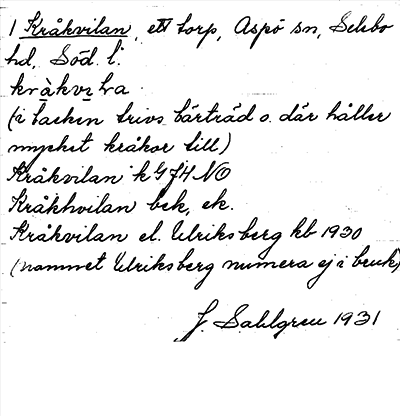 1 Kråkvilan, ett torp, Aspö sn, Selebo
hd, Söd. l.
kråkvila
(i backen trivs bärträd o. där håller
mycket kråkor till)
Kråkvilan k G J4 NO
Kråkhvilan bek, ek.
Kråkvilan el. Ulriksberg kb 1930
(namnet Ulriksberg numera ej i bruk)
J. Sahlgren 1931